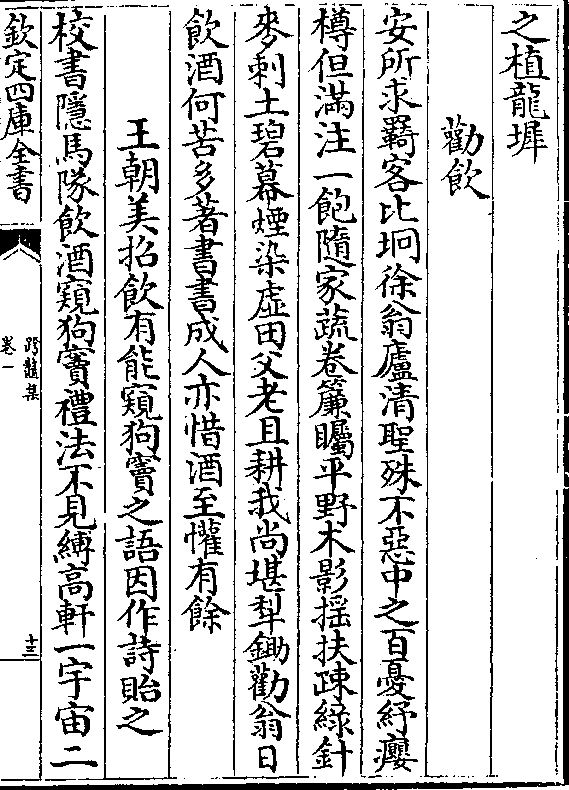 之植龍墀
勸飲
安所求羇客比坰徐翁廬清聖殊不惡中之百憂紓癭
樽但滿注一飽隨家蔬卷簾矚平野木影摇扶疎綠針
麥刺土碧幕煙染虚田父老且耕我尚堪犁鋤勸翁日
飲酒何苦多著書書成人亦惜酒至懽有餘
王朝美招飲有能窺狗竇之語因作詩貽之
校書隱馬隊飲酒窺狗竇禮法不見縛高軒一宇宙二
欽定四庫全書
跨鼇集
卷一
十三